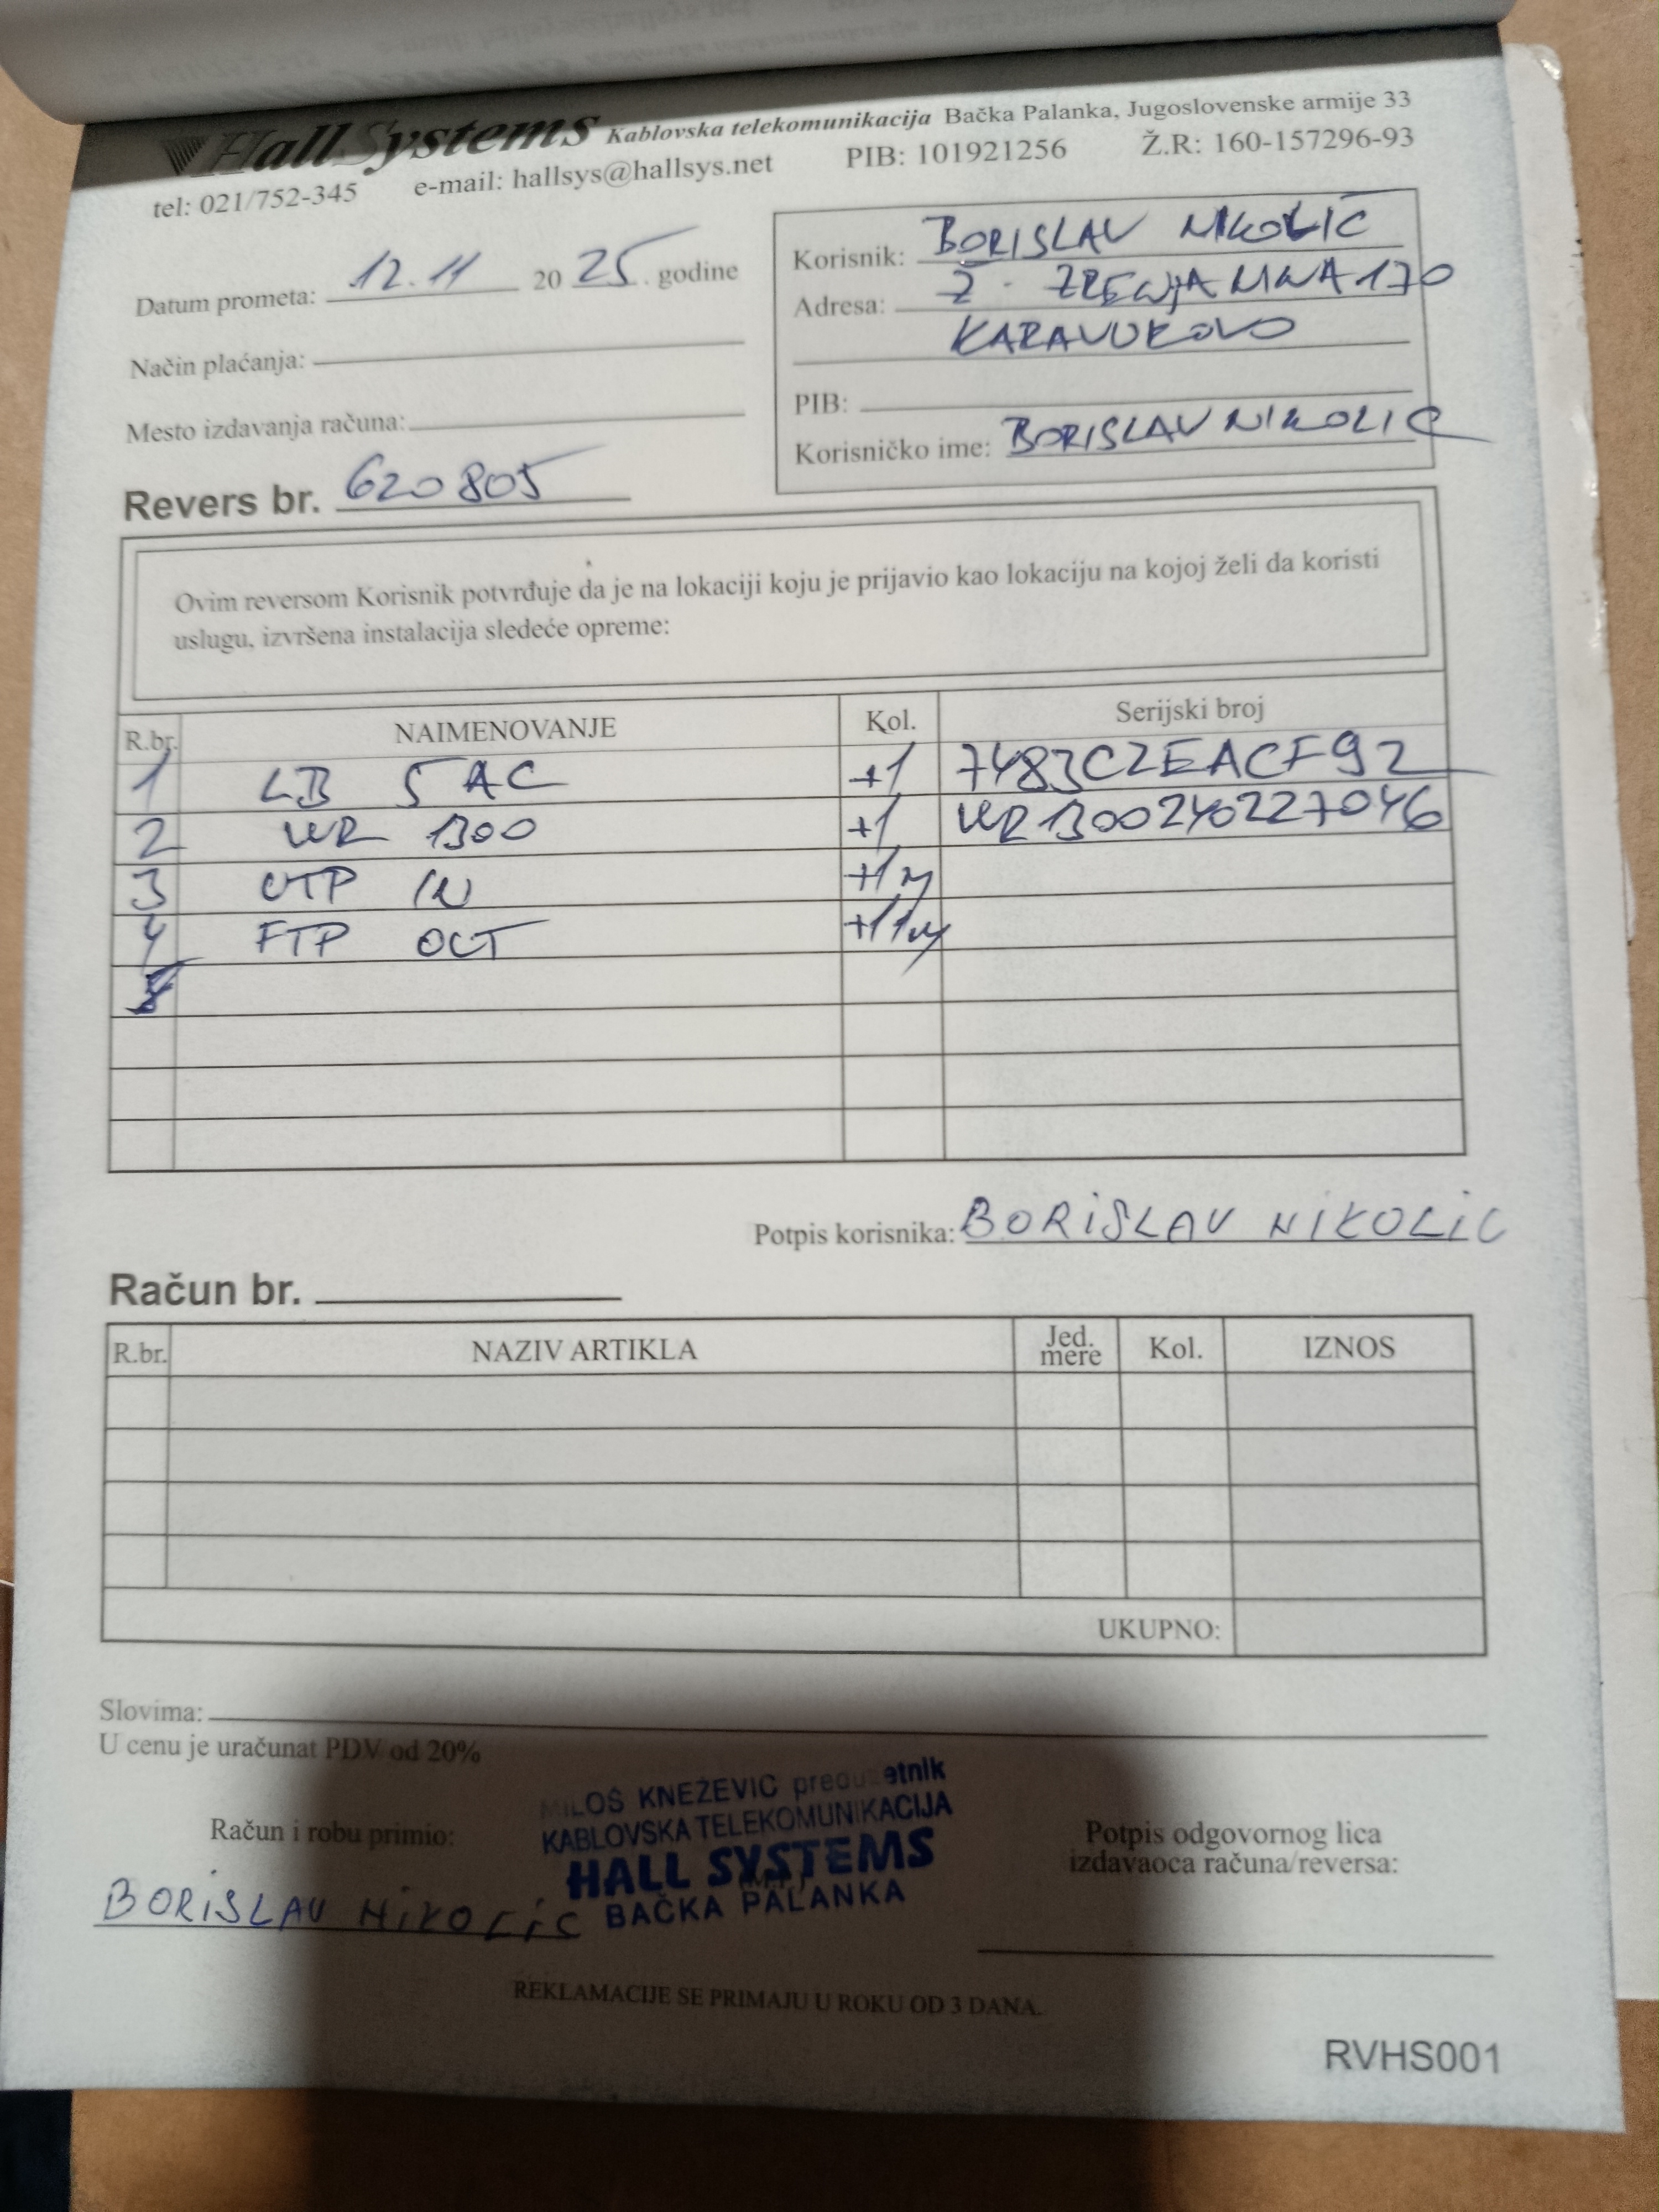 HallSystems Kablovska telekomunikacija Bačka Palanka, Jugoslovenske armije 33
tel: 021/752-345 e-mail: hallsys@hallsys.net PIB: 101921256 Ž.R: 160-157296-93
Datum prometa: 12.11 2025. godine
Način plaćanja:
Mesto izdavanja računa:
Revers br. 620805
Korisnik: BORISLAV NIKOLIĆ
Adresa: Ž. ZRENJANINA 170
KARAVUKOVO
PIB:
Korisničko ime: BORISLAV NIKOLIC
Ovim reversom Korisnik potvrđuje da je na lokaciji koju je prijavio kao lokaciju na kojoj želi da koristi
uslugu, izvršena instalacija sledeće opreme:
R.br. NAIMENOVANJE Kol. Serijski broj
1 LB 5 AC +1 7483C2EACF92
2 WR 1300 +1 WR1300240227046
3 UTP IN +1m
4 FTP OUT +11m
Potpis korisnika: BORISLAV NIKOLIC
Račun br.
R.br. NAZIV ARTIKLA Jed. mere Kol. IZNOS
UKUPNO:
Slovima:
U cenu je uračunat PDV od 20%
MILOŠ KNEŽEVIĆ preduzetnik
KABLOVSKA TELEKOMUNIKACIJA
HALL SYSTEMS
BAČKA PALANKA
Račun i robu primio:
BORISLAV NIKOLIC
(M.P.)
Potpis odgovornog lica
izdavaoca računa/reversa:
REKLAMACIJE SE PRIMAJU U ROKU OD 3 DANA.
RVHS001